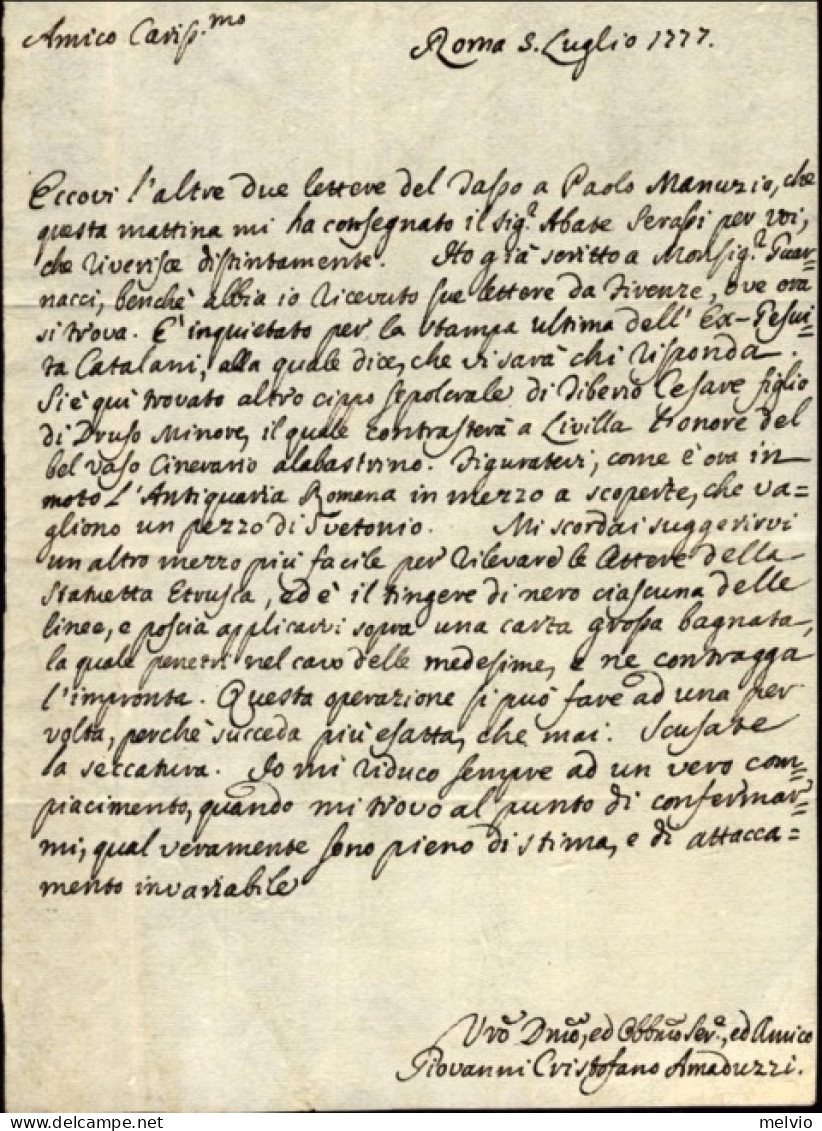 Amico Cariss.mo
Roma 5. Luglio 1777.
Eccovi l'altre due lettere del Tasso a Paolo Manuzio, che
questa mattina mi ha consegnato il sig.r Abate Serassi per voi,
che riverisce distintamente. Ho già scritto a Monsig.r Guar=
nacci, benchè abbia io ricevuto sue lettere da Firenze, ove ora
si trova. E' inquietato per la stampa ultima dell' Ex-Gesui=
ta Catalani, alla quale dice, che vi sarà chi risponda.
Si è quì trovato altro cippo sepolcrale di Tiberio Cesare figlio
di Druso Minore, il quale contrasterà a Livilla l'onore del
bel vaso Cinerario alabastrino. Figuratevi, come è ora in
moto l'Antiquaria Romana in mezzo a scoperte, che va=
gliono un pezzo di Svetonio. Mi scordai suggerirvi
un altro mezzo più facile per rilevare le lettere della
statuetta Etrusca, ed è il tingere di nero ciascuna delle
linee, e poscia applicarvi sopra una carta grossa bagnata,
la quale penetri nel cavo delle medesime, e ne contragga
l'impronta. Questa operazione si può fare ad una per
volta, perchè succeda più esatta, che mai. Scusate
la seccatura. Io mi riduco sempre ad un vero com=
piacimento, quando mi trovo al punto di confermar=
mi, qual veramente sono pieno di stima, e di attacca=
mento invariabile
Vro Dmo, ed Obbmo Ser.e, ed Amico
Giovanni Cristofano Amaduzzi.
www.delcampe.net
melvio